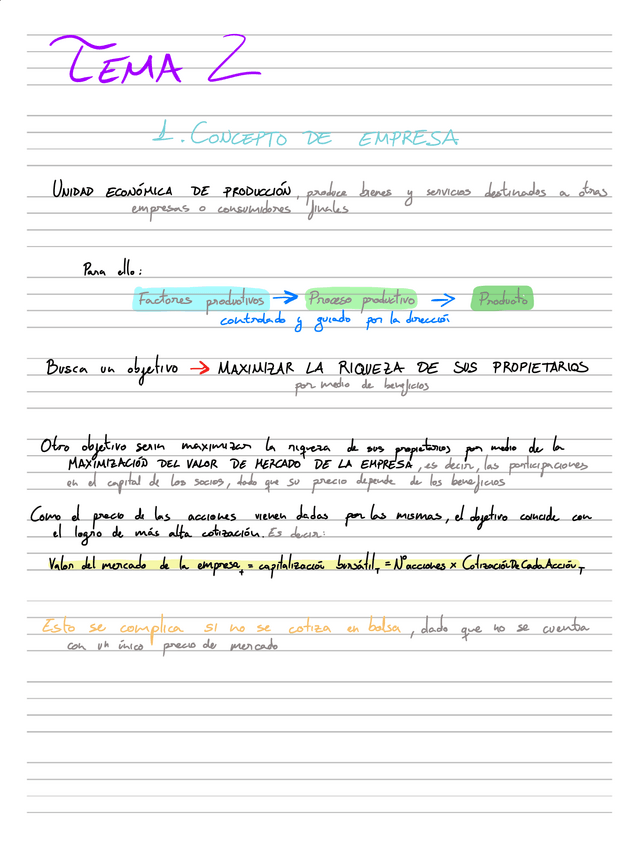 TEMA 2
1. CONCEPTO DE EMPRESA
UNIDAD ECONÓMICA DE PRODUCCIÓN, produce bienes y servicios destinados a otras
empresas o consumidores finales
Para ello:
Factores productivos → Proceso productivo → Producto
controlado y guiado por la dirección
Busca un objetivo → MAXIMIZAR LA RIQUEZA DE SUS PROPIETARIOS
por medio de beneficios
Otro objetivo sería maximizar la riqueza de sus propietarios por medio de la
MAXIMIZACIÓN DEL VALOR DE MERCADO DE LA EMPRESA, es decir, las participaciones
en el capital de los socios, dado que su precio depende de los beneficios
Como el precio de las acciones vienen dadas por las mismas, el objetivo coincide con
el logro de más alta cotización. Es decir:
Valor del mercado de la empresa_T = capitalización bursátil_T = Nº acciones × CotizaciónDeCadaAcción_T
Esto se complica si no se cotiza en bolsa, dado que no se cuenta
con un único precio de mercado